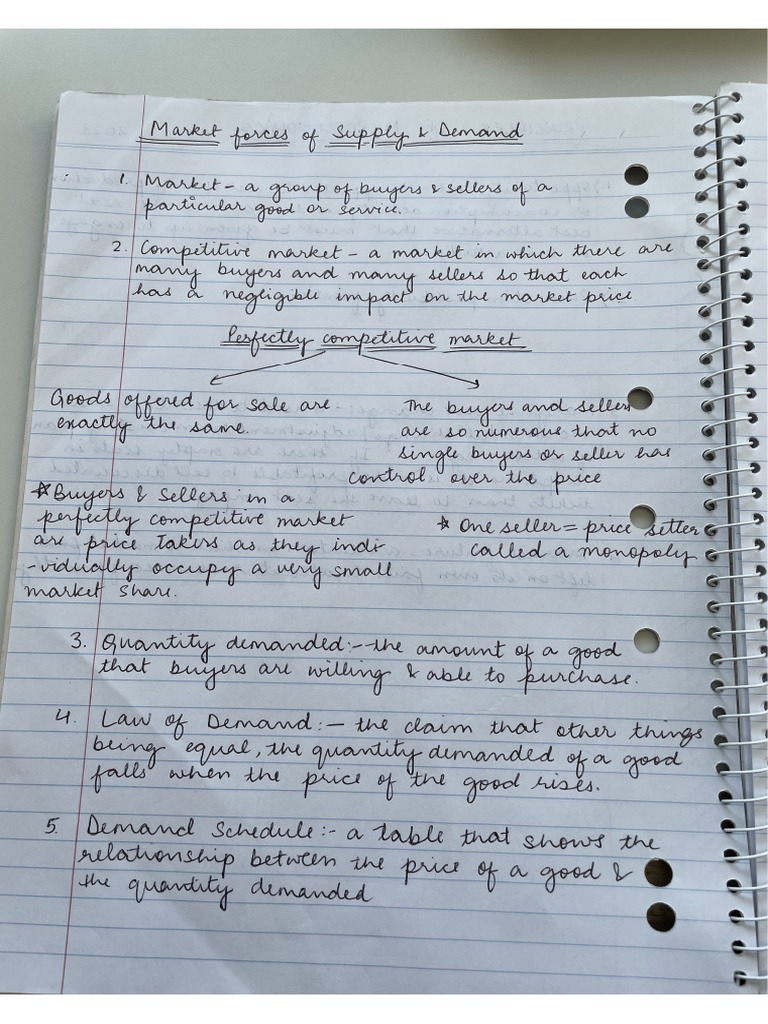 Market forces of Supply & Demand
1. Market - a group of buyers & sellers of a
particular good or service.
2. Competitive market - a market in which there are
many buyers and many sellers so that each
has a negligible impact on the market price
Perfectly competitive market
Goods offered for sale are
exactly the same.
The buyers and sellers
are so numerous that no
single buyers or seller has
control over the price
* Buyers & Sellers in a
perfectly competitive market
are price takers as they indi
-vidually occupy a very small
market share.
* One seller = price setter
called a monopoly
3. Quantity demanded:- the amount of a good
that buyers are willing & able to purchase.
4. Law of Demand:- the claim that other things
being equal, the quantity demanded of a good
falls when the price of the good rises.
5. Demand Schedule:- a table that shows the
relationship between the price of a good &
the quantity demanded